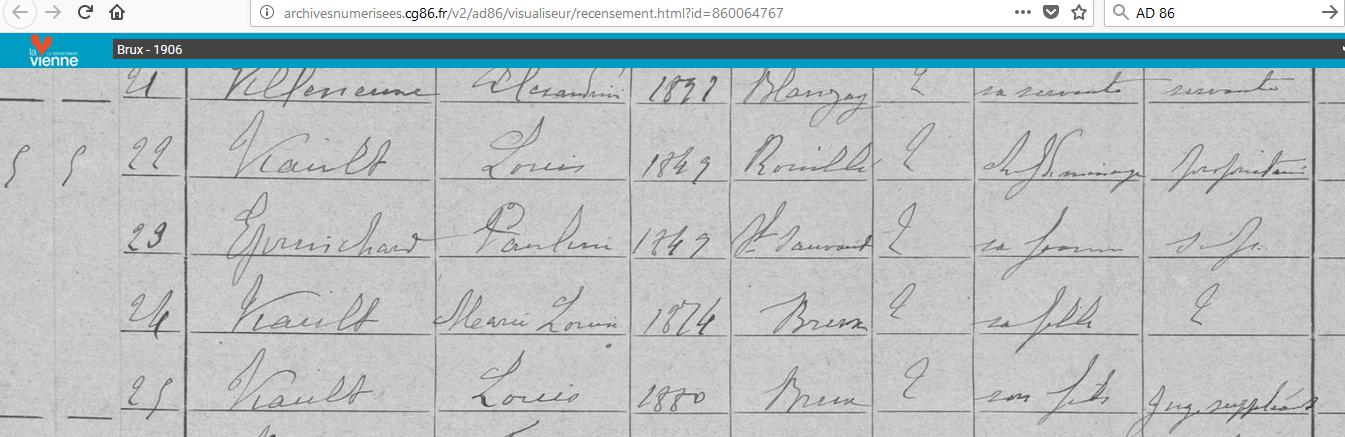 archivesnumerisees.cg86.fr/v2/ad86/visualiseur/recensement.html?id=860064767 AD 86
la vienne LE DÉPARTEMENT Brux - 1906
21 Villeneuve 1891 Blanzay sa servante servante
5 5 22 Viault Louis 1849 Rouillé chef de ménage propriétaire
23 1849 St Sauvant sa femme
24 Viault Marie Louise 1874 Brux sa fille
25 Viault Louis 1880 Brux son fils Juge suppléant